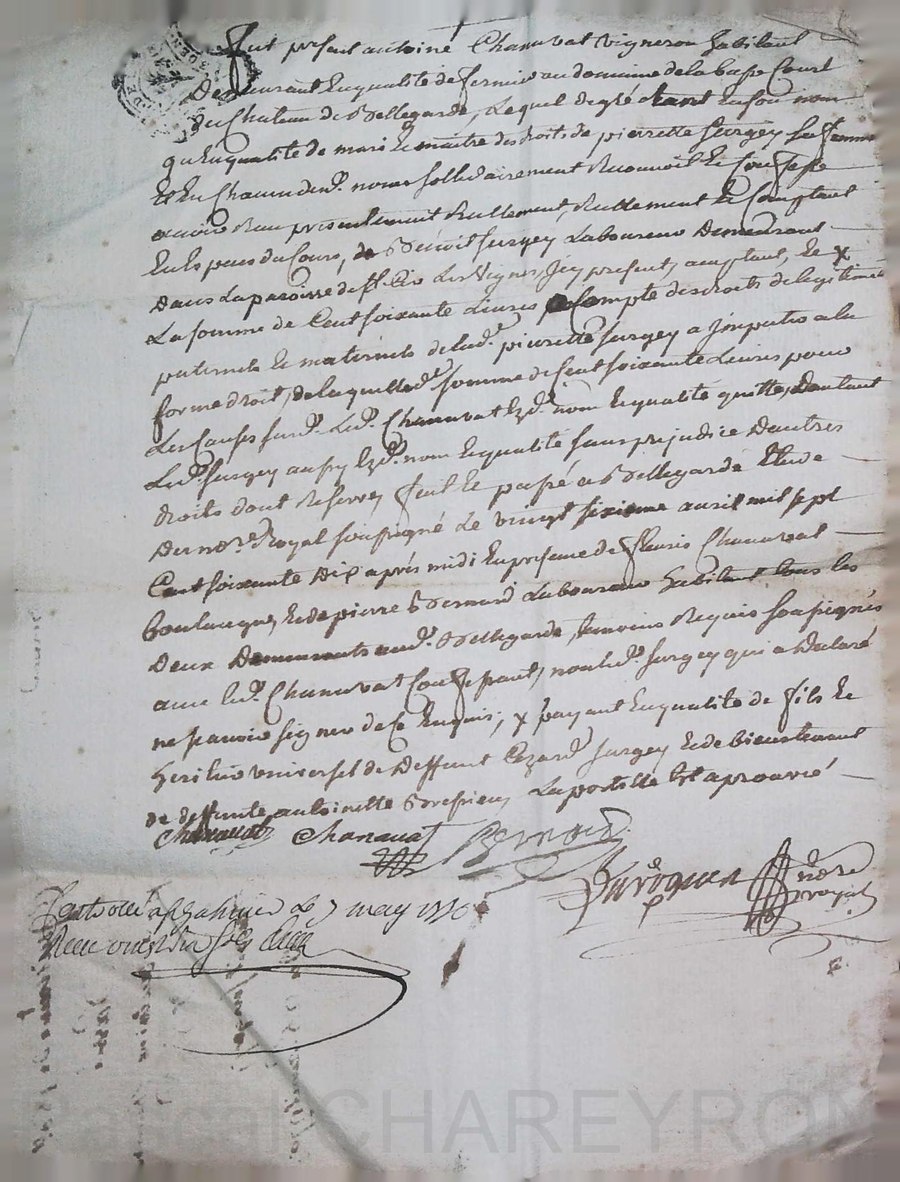 Fut present antoine Chanavat vigneron habitant
Demeurant En qualité de fermier au domaine de la basse Court
du Chateau de Bellegarde, Lequel de gré tant En son nom
qu En qualité de mari Le maitre des droits de pierrette Surgey Sa femme
Et En Chacun desd. noms sollidairement Reconnoit Et Confesse
avoir Reçu presentement Reellement, Reellement Et Comptant
En Especes du Cours, de Benoit Surgey Laboureur Demeurant
Dans La paroisse de St Cir Les Vignes, Icy present, acceptant, Et x
La somme de Cent soixante Livres a Compte des droits de legitime
paternels Et maternels de lad.e pierrette Surgey a Imputer a la
forme droit, de laquelle d.e somme de Cent soixante Livres pour
Les Causes susd. Led. Chanavat Ezd. nom Et qualité quitte, Dautant
Led. Surgey aussy Ezd. nom Et qualité sans prejudice Dautres
droits dont Reserve, fait Et passé a Bellegarde Etude
Du no.re Royal soussigné Le vingt sixieme avril mil sept
Cent soixante Dix après midi En presence de fleuris Chanavat
boulanger, Et de pierre Bernard Laboureur habitant tous les
Deux Demeurants aud. Bellegarde, temoins Requis soussignés
avec led. Chanavat Confessant, non led. Surgey qui a Déclaré
ne sçavoir signer de Ce Enquis; x payant En qualité de fils Et
heritier universel de Deffunt Cezard Surgey Et de bienstenant
de deffunte antoinette La postille Est aprouvée
Chanavat Chanavat Bernard
no.re royal
7 may 1770
Reçu sols
Pascal CHAREYRON